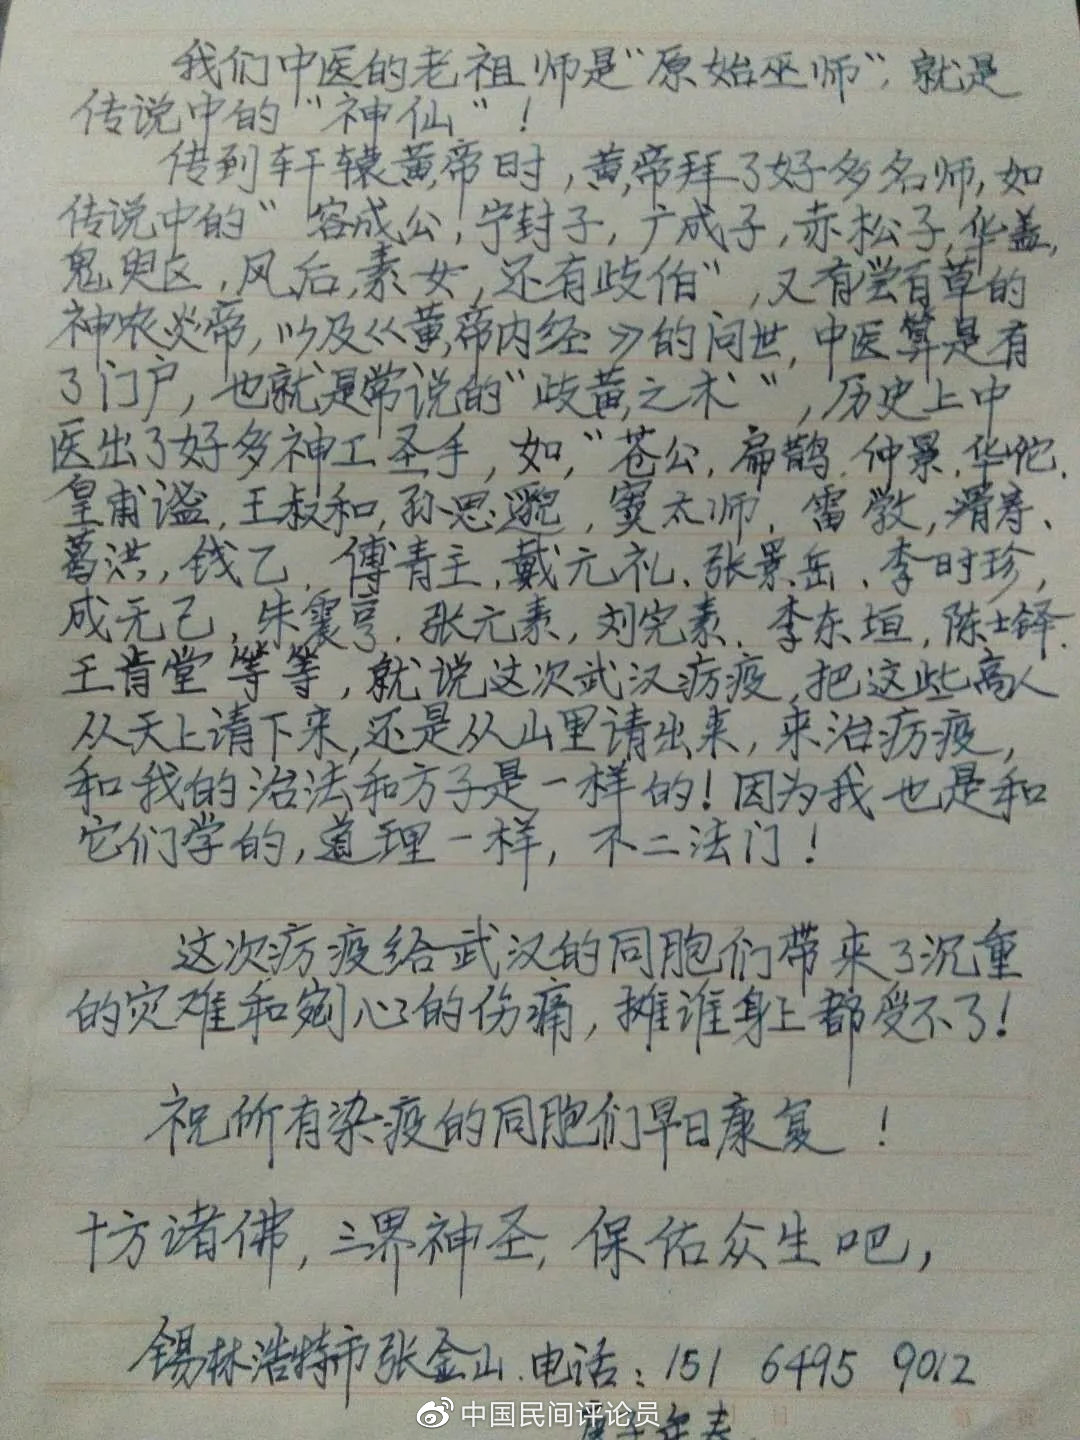 我们中医的老祖师是"原始巫师"，就是
传说中的"神仙"！
传到轩辕黄帝时，黄帝拜了好多名师，如
传说中的"容成公，宁封子，广成子，赤松子，华盖，
鬼臾区，风后，素女，还有歧伯"，又有尝百草的
神农炎帝，以及《黄帝内经》的问世，中医算是有
了门户，也就是常说的"歧黄之术"，历史上中
医出了好多神工圣手，如，"苍公，扁鹊、仲景、华佗、
皇甫谧，王叔和，孙思邈，窦太师，雷敩，滑寿、
葛洪，钱乙，傅青主，戴元礼、张景岳、李时珍，
成无己，朱震亨、张元素，刘完素、李东垣，陈士铎、
王肯堂等等，就说这次武汉疠疫，把这些高人
从天上请下来，还是从山里请出来，来治疠疫，
和我的治法和方子是一样的！因为我也是和
它们学的，道理一样，不二法门！
这次疠疫给武汉的同胞们带来了沉重
的灾难和剜心的伤痛，摊谁身上都受不了！
祝所有染疫的同胞们早日康复！
十方诸佛，三界神圣，保佑众生吧，
锡林浩特市张金山、电话：151 6495 9012
庚子年春
中国民间评论员